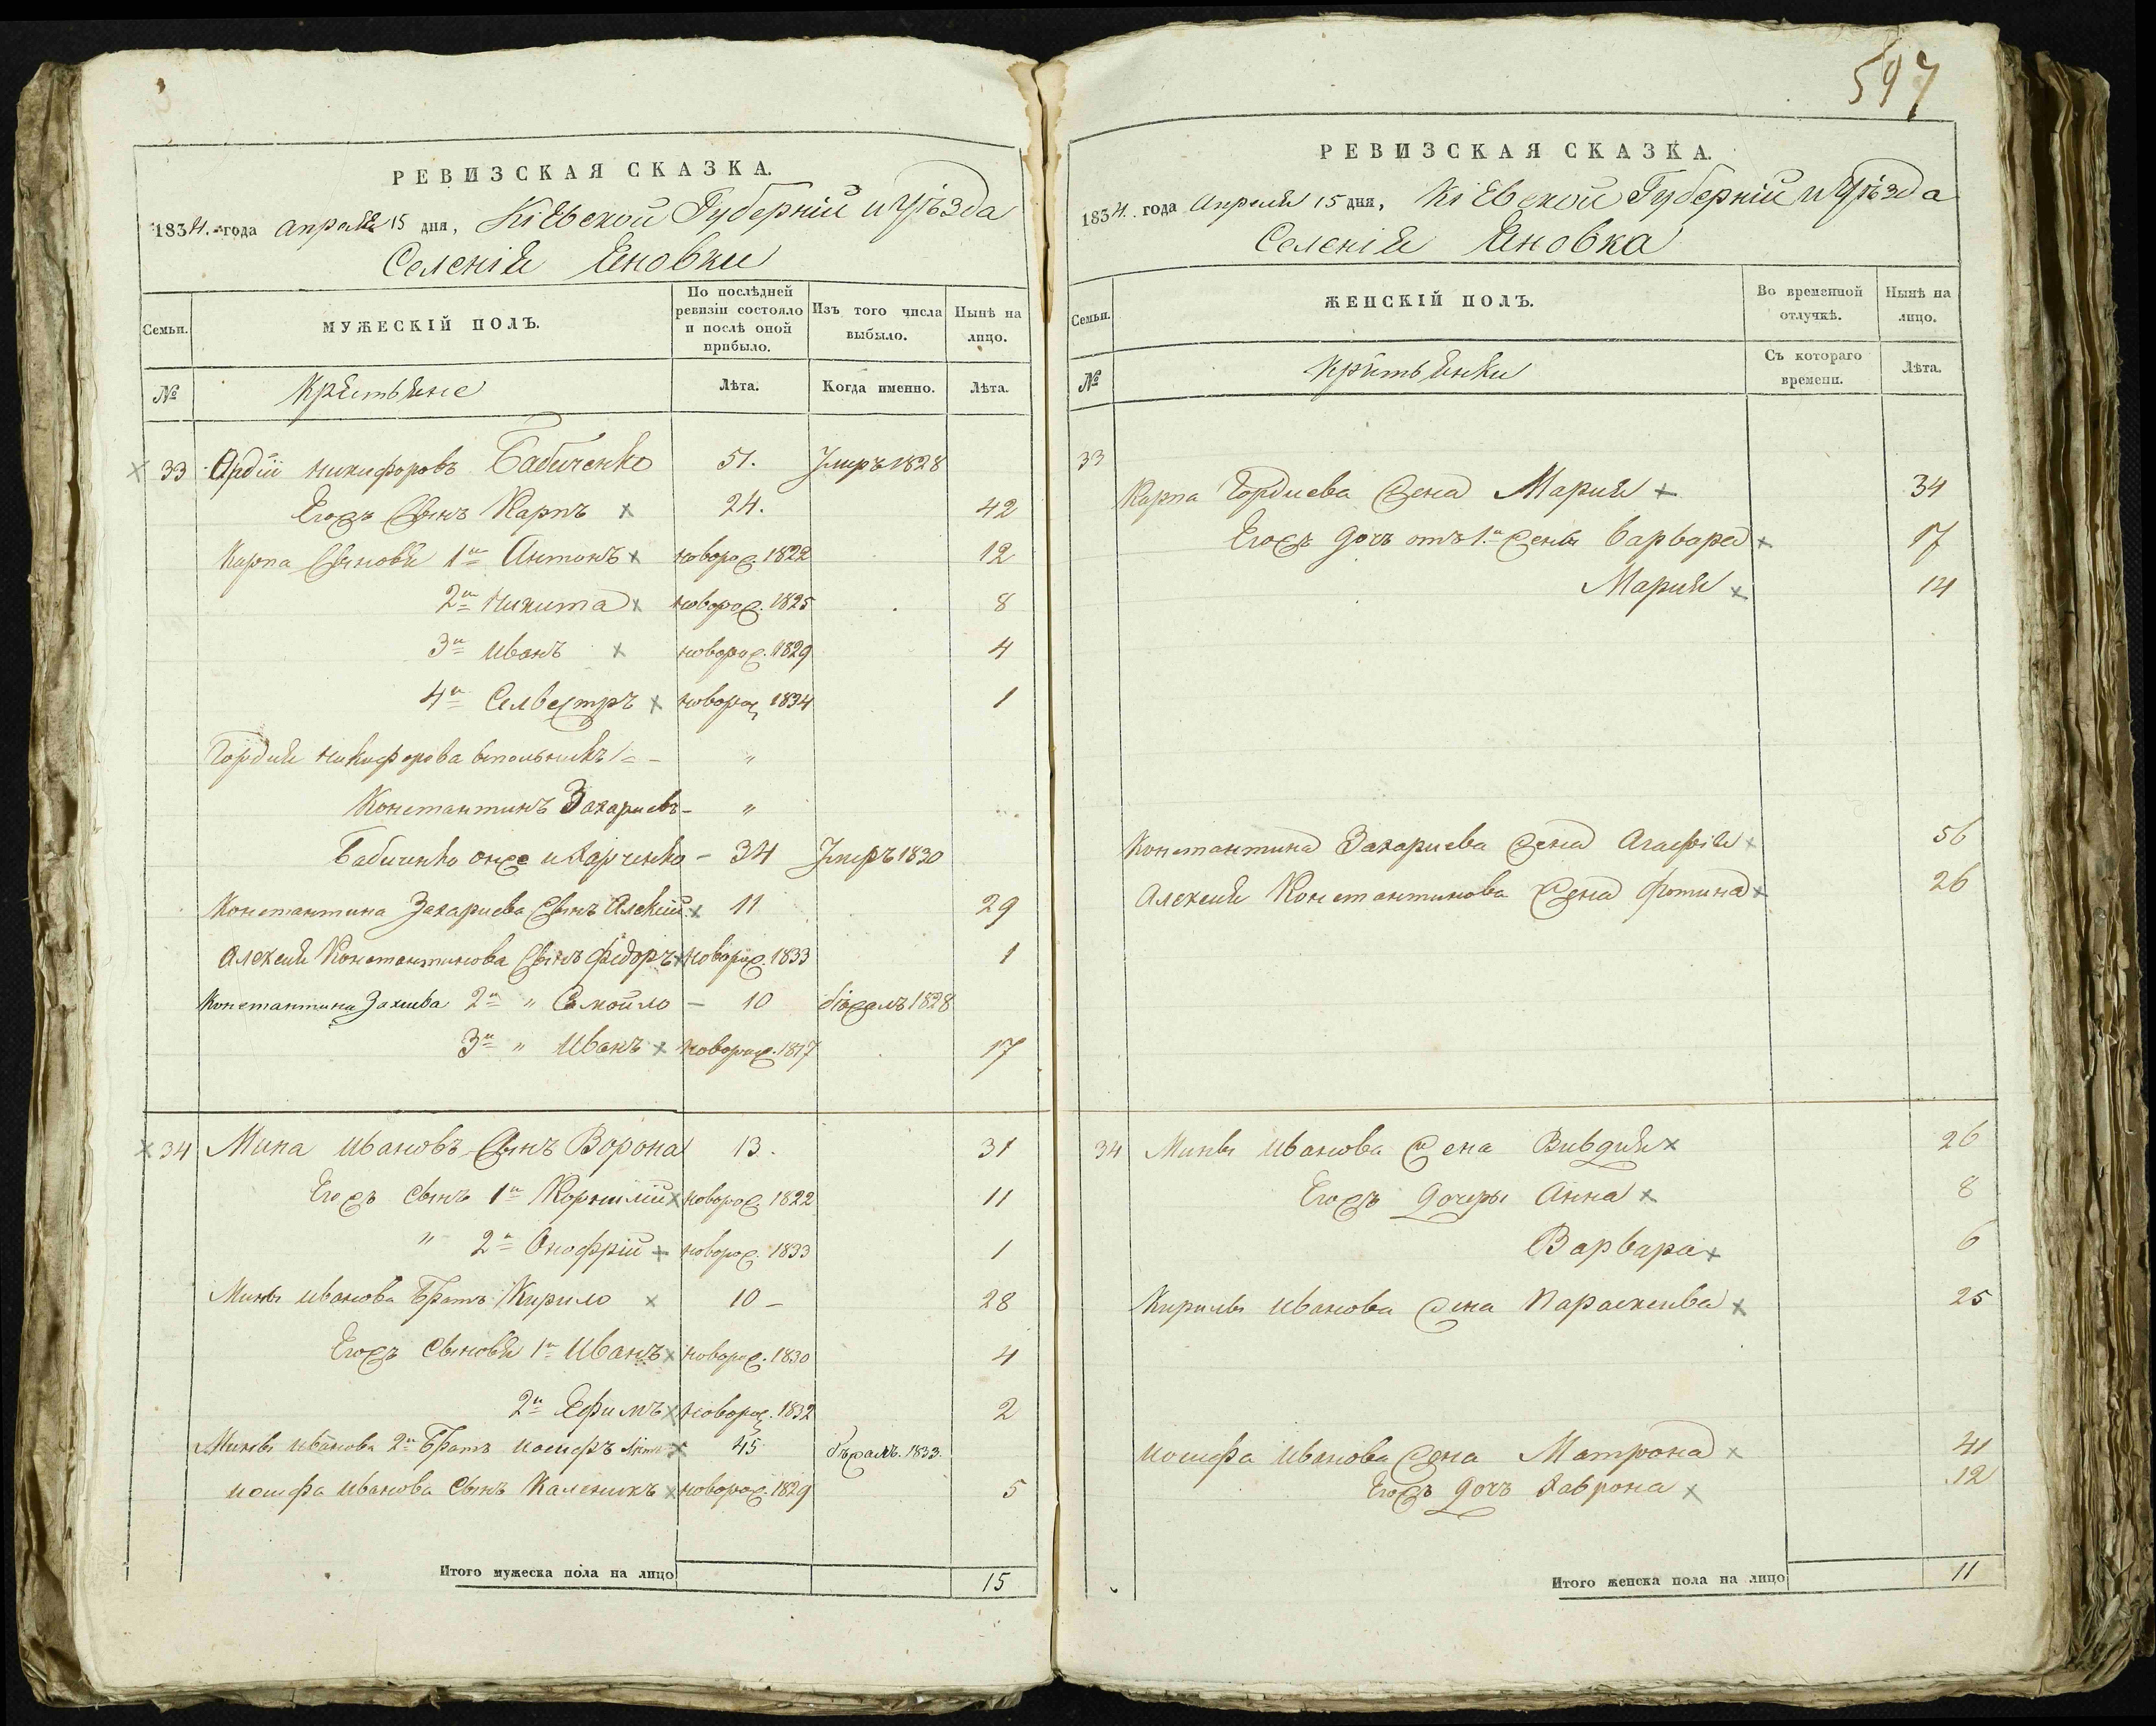 597
РЕВИЗСКАЯ СКАЗКА.
1834. года Апреля 15 дня, Кіевской Губерніи и Уѣзда
Селенія Яновки
Семьи.
МУЖЕСКІЙ ПОЛЪ.
По послѣдней ревизіи состояло и послѣ оной прибыло.
Изъ того числа выбыло.
Нынѣ на лицо.
№
Лѣта.
Когда именно.
Лѣта.
33 Никифоровъ Бабиченко 51. Умръ 1828
Егожъ Сынъ Карпъ 24. 42
Карпа Сыновя 1й Антонъ новорож. 1822 12
2й Никита новорож. 1825 8
3й Иванъ новорож. 1829 4
4й Селвестръ новорож 1834 1
Гордия Никифорова 1
Константинъ Захариевъ - "
Бабиченко онже и Харченко - 34 Умръ 1830
Константина Захариева Сынъ Алексій 11 29
Алексия Константинова Сынъ Федоръ новорож. 1833 1
Константина 2й " Самойло - 10 бѣжалъ 1828
3й " Иванъ новорож. 1817 17
34 Мина Ивановъ Сынъ Ворона 13. 31
Егожъ Сынъ 1й Корнилій новорож. 1822 11
" 2й Онофрій новорож. 1833 1
Мины Иванова Братъ Кирило 10 - 28
Егожъ Сыновя 1й Иванъ новорож. 1830 4
2й Ефимъ новорож. 1832 2
Мины Иванова 2й Братъ Иосифъ 45 бѣжалъ. 1833.
Иосифа Иванова Сынъ Каленикъ новорож. 1829 5
Итого мужеска пола на лицо 15
РЕВИЗСКАЯ СКАЗКА.
1834. года Апреля 15 дня, Кіевской Губерніи и Уѣзда
Селенія Яновка
Семьи.
ЖЕНСКІЙ ПОЛЪ.
Во временной отлучкѣ.
Нынѣ на лицо.
№
Съ котораго времени.
Лѣта.
33
Карпа Гордиева Жена Мария 34
Егожъ дочь отъ 1й жены Варвара 17
Мария 14
Константина Захариева Жена Агафія 56
Алексия Константинова Жена Фотина 26
34 Мины Иванова Жена Вивдия 26
Егожъ дочеры Анна 8
Варвара 6
Кирилы Иванова Жена Параскева 25
Иосифа Иванова Жена Матрона 41
Егожъ дочь Хаврона 12
Итого женска пола на лицо 11